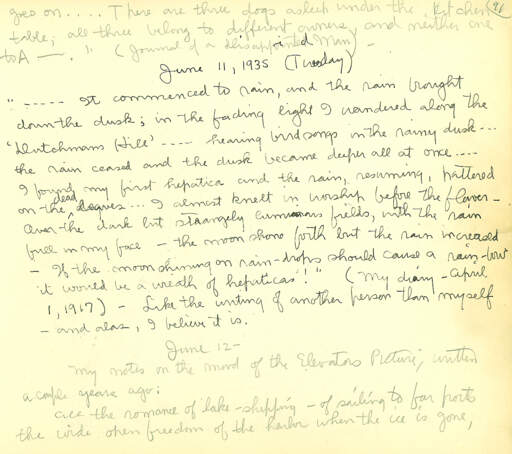 goes on .... There are three dogs asleep under the kitchen
table; all three belong to different owners and neither one
to A —. " (Journal of a Disappointed Man) -
June 11, 1935 (Tuesday)
" ----- It commenced to rain, and the rain brought
down the dusk; in the fading light I wandered along the
'Dutchmans Hill' ---- hearing bird songs in the rainy dusk ---
the rain ceased and the dusk became deeper all at once ----
I found my first hepatica and the rain, resuming, pattered
on the dead leaves ... I almost knelt in worship before the flower -
Over the dark but strangely fields, with the rain
full in my face - the moon shone forth but the rain increased
- If the moon shining on rain-drops should cause a rain-bow
it would be a wreath of hepaticas!" (My diary - April
1, 1917) - Like the writing of another person than myself
- and alas, I believe it is.
June 12 -
My notes on the mood of the Elevators Picture, written
a couple years ago:
all the romance of lake-shipping - of sailing to far ports
the wide open freedom of the harbor when the ice is gone,